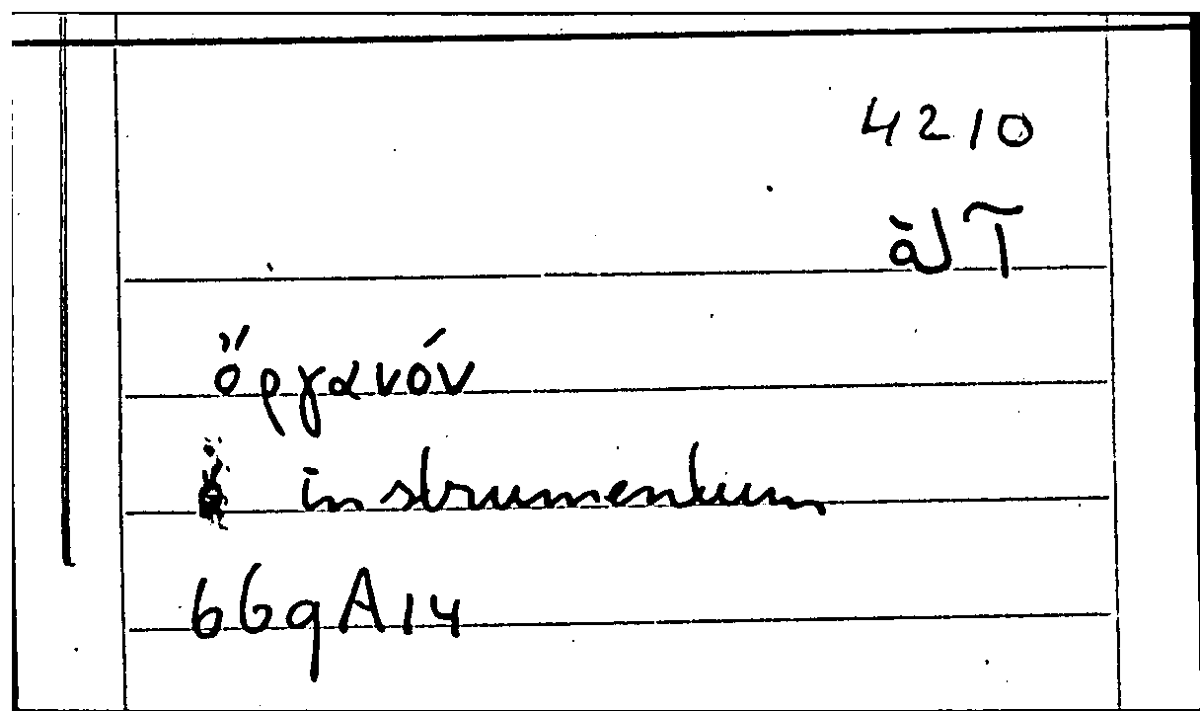 4210
آلة
ὄργανόν
instrumentum
669A14